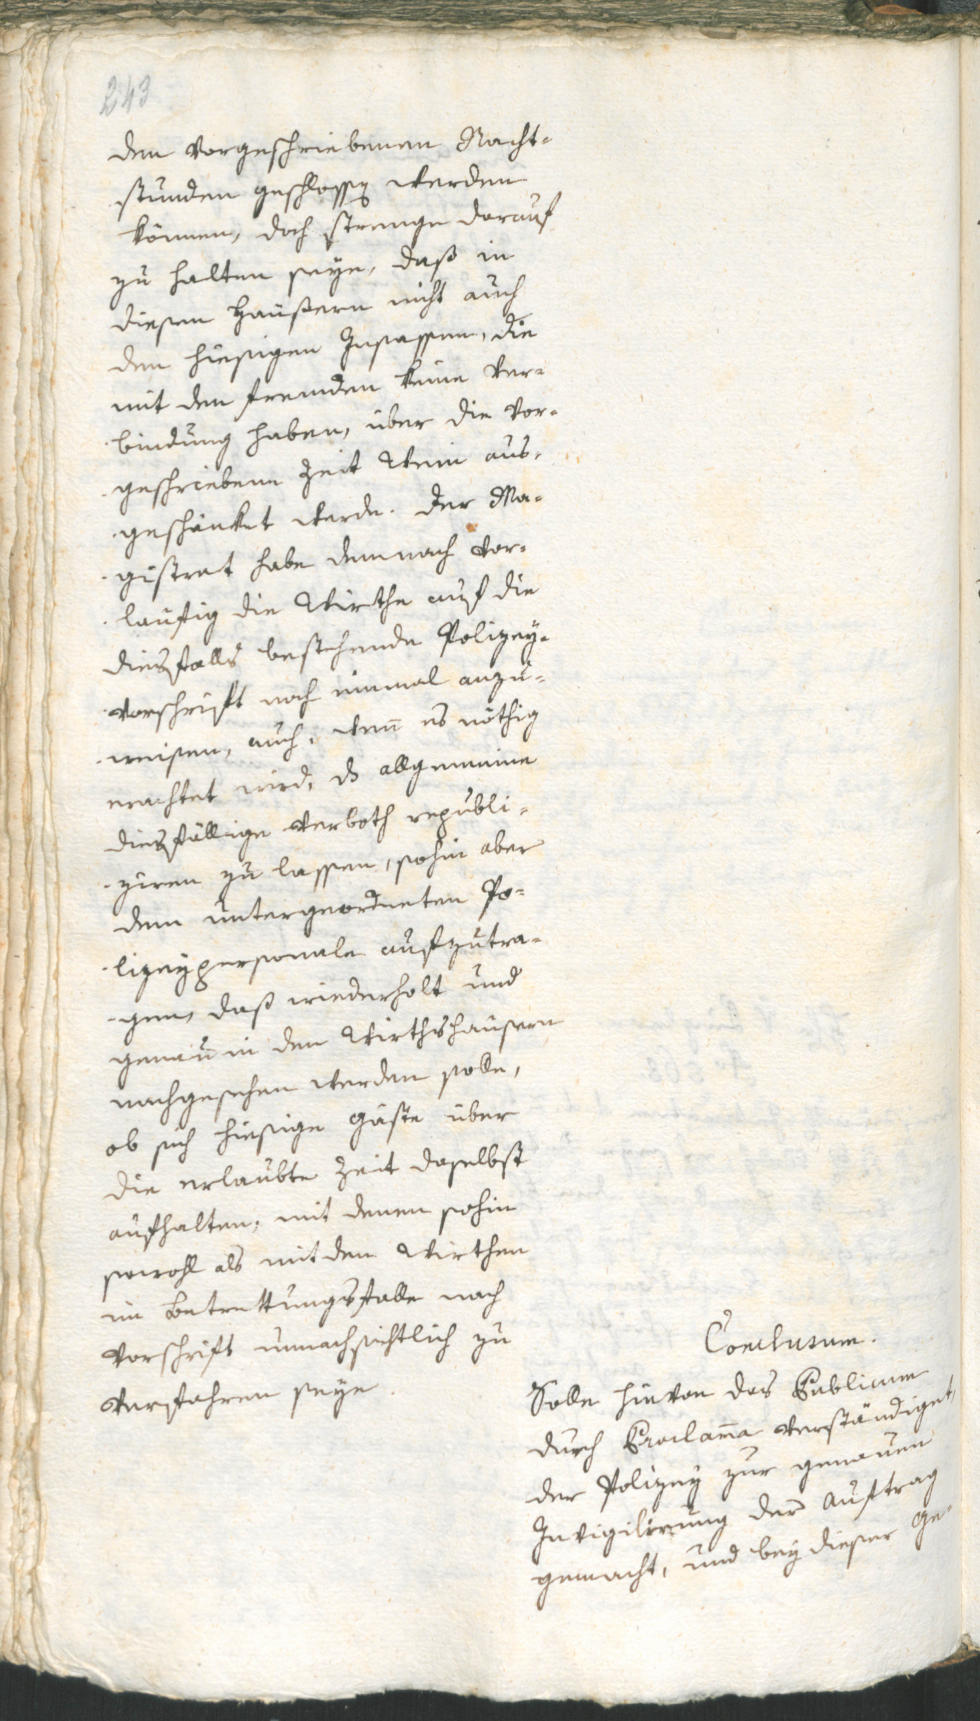 243
den vorgeschriebenen Nacht-
stunden geschlossen werden
können, doch strenge darauf
zu halten seye, daß in
diesen Häußern nicht auch
den hiesigen Insassen, die
mit den fremden keine Ver-
bindung haben, über die vor-
geschriebene Zeit Wein aus-
geschänket werde. Der Ma-
gistrat habe demnach vor-
läufig die Wirthe auf die
diesfalls bestehende Polizey-
vorschrift noch einmal anzu-
weisen, auch, wenn es nöthig
erachtet wird, das allgemeine
diesfällige Verboth republi-
ziren zu lassen, sohin aber
dem untergeordneten Po-
lizeypersonale aufzutra-
gen, daß wiederholt und
genau in den Wirthshäusern
nachgesehen werden solle,
ob sich hiesige Gäste über
die erlaubte Zeit daselbst
aufhalten, mit denen sohin
sowohl als mit den Wirthen
im Betrettungsfalle nach
Vorschrift unnachsichtlich zu
verfahren seye.
Conclusum.
Solle hievon das Publicum
durch Proclama verständiget,
der Polizey zur genauen
Invigilirung der Auftrag
gemacht, und bey dieser Ge-